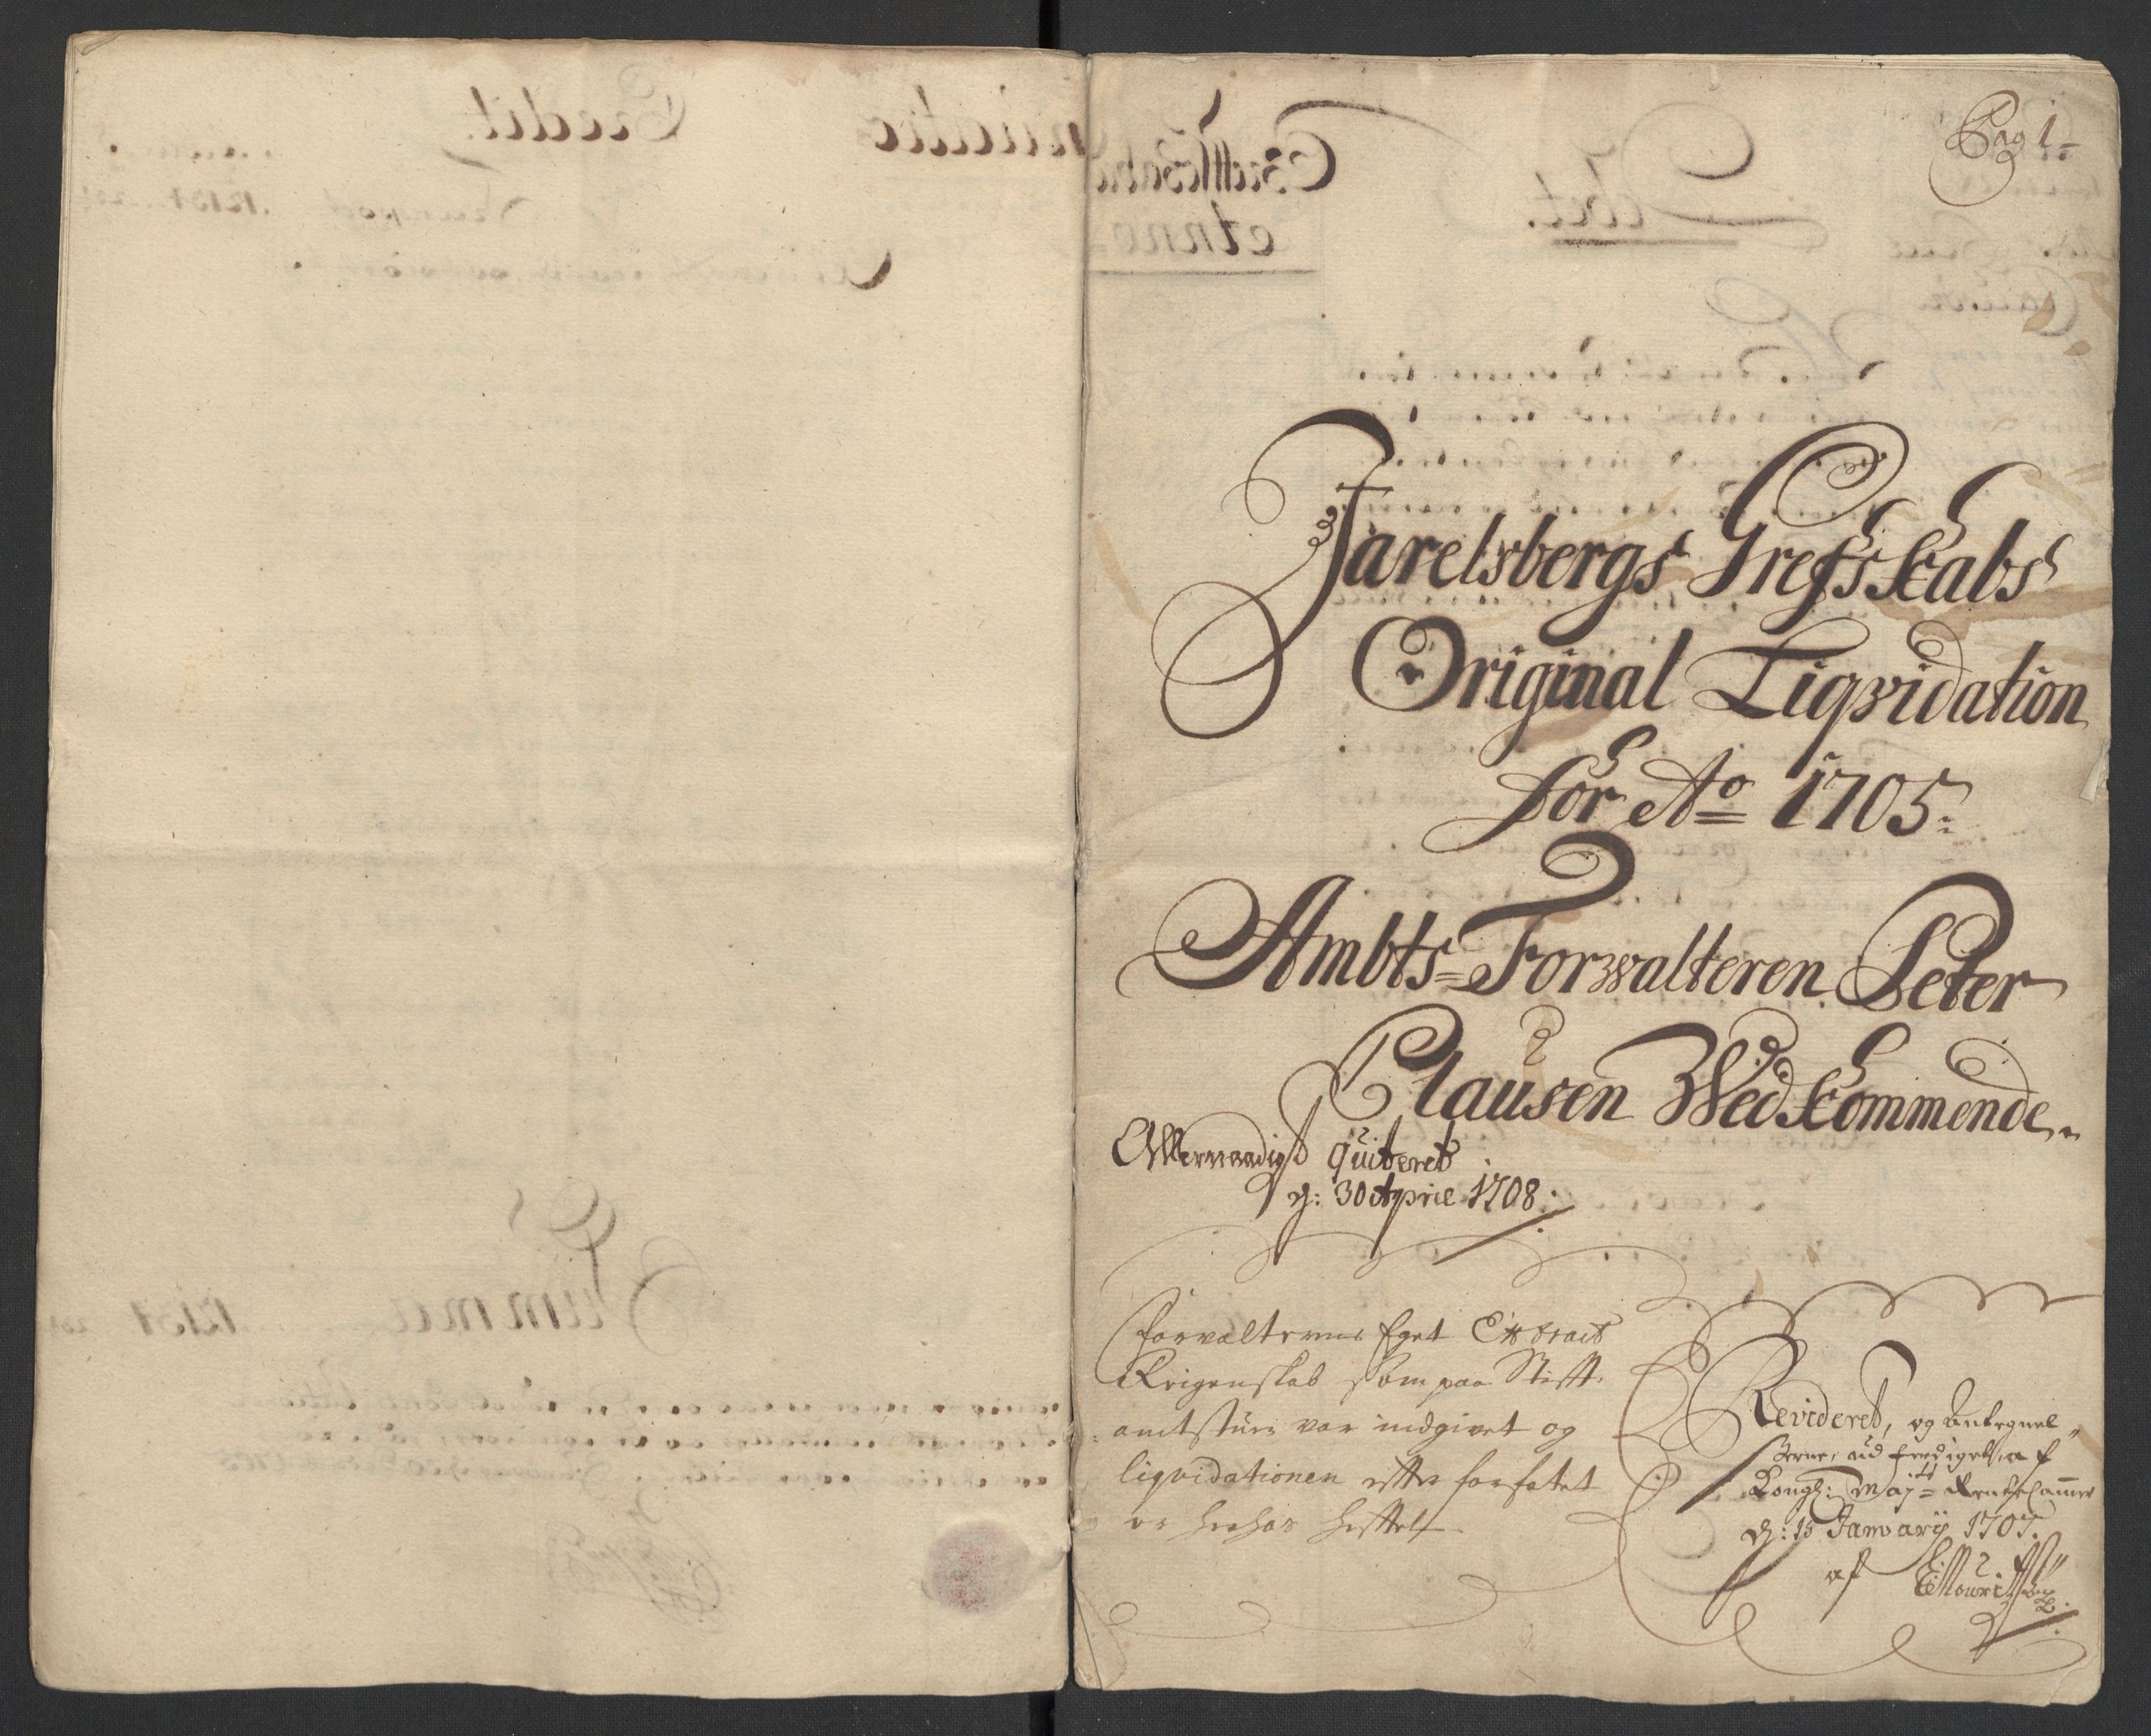 Pag 1
Jarelsbergs Grefskabs
Original Liqvidation
for Ao 1705.
Ambts-Forwalteren Peter
Clausen Wedkommende.
Allernaadigst quiteret
d: 30 April 1708.
Forvalterens Eget Extract
Reigenskab som paa Stift-
amtstuen var indgivet og
liqvidationen efter forfatet
er herhos heftet
Revideret, og Antegnel-
serne udferdiget, af
Kongl: Maj: Rentecammer
d: 15 January 1707.
af